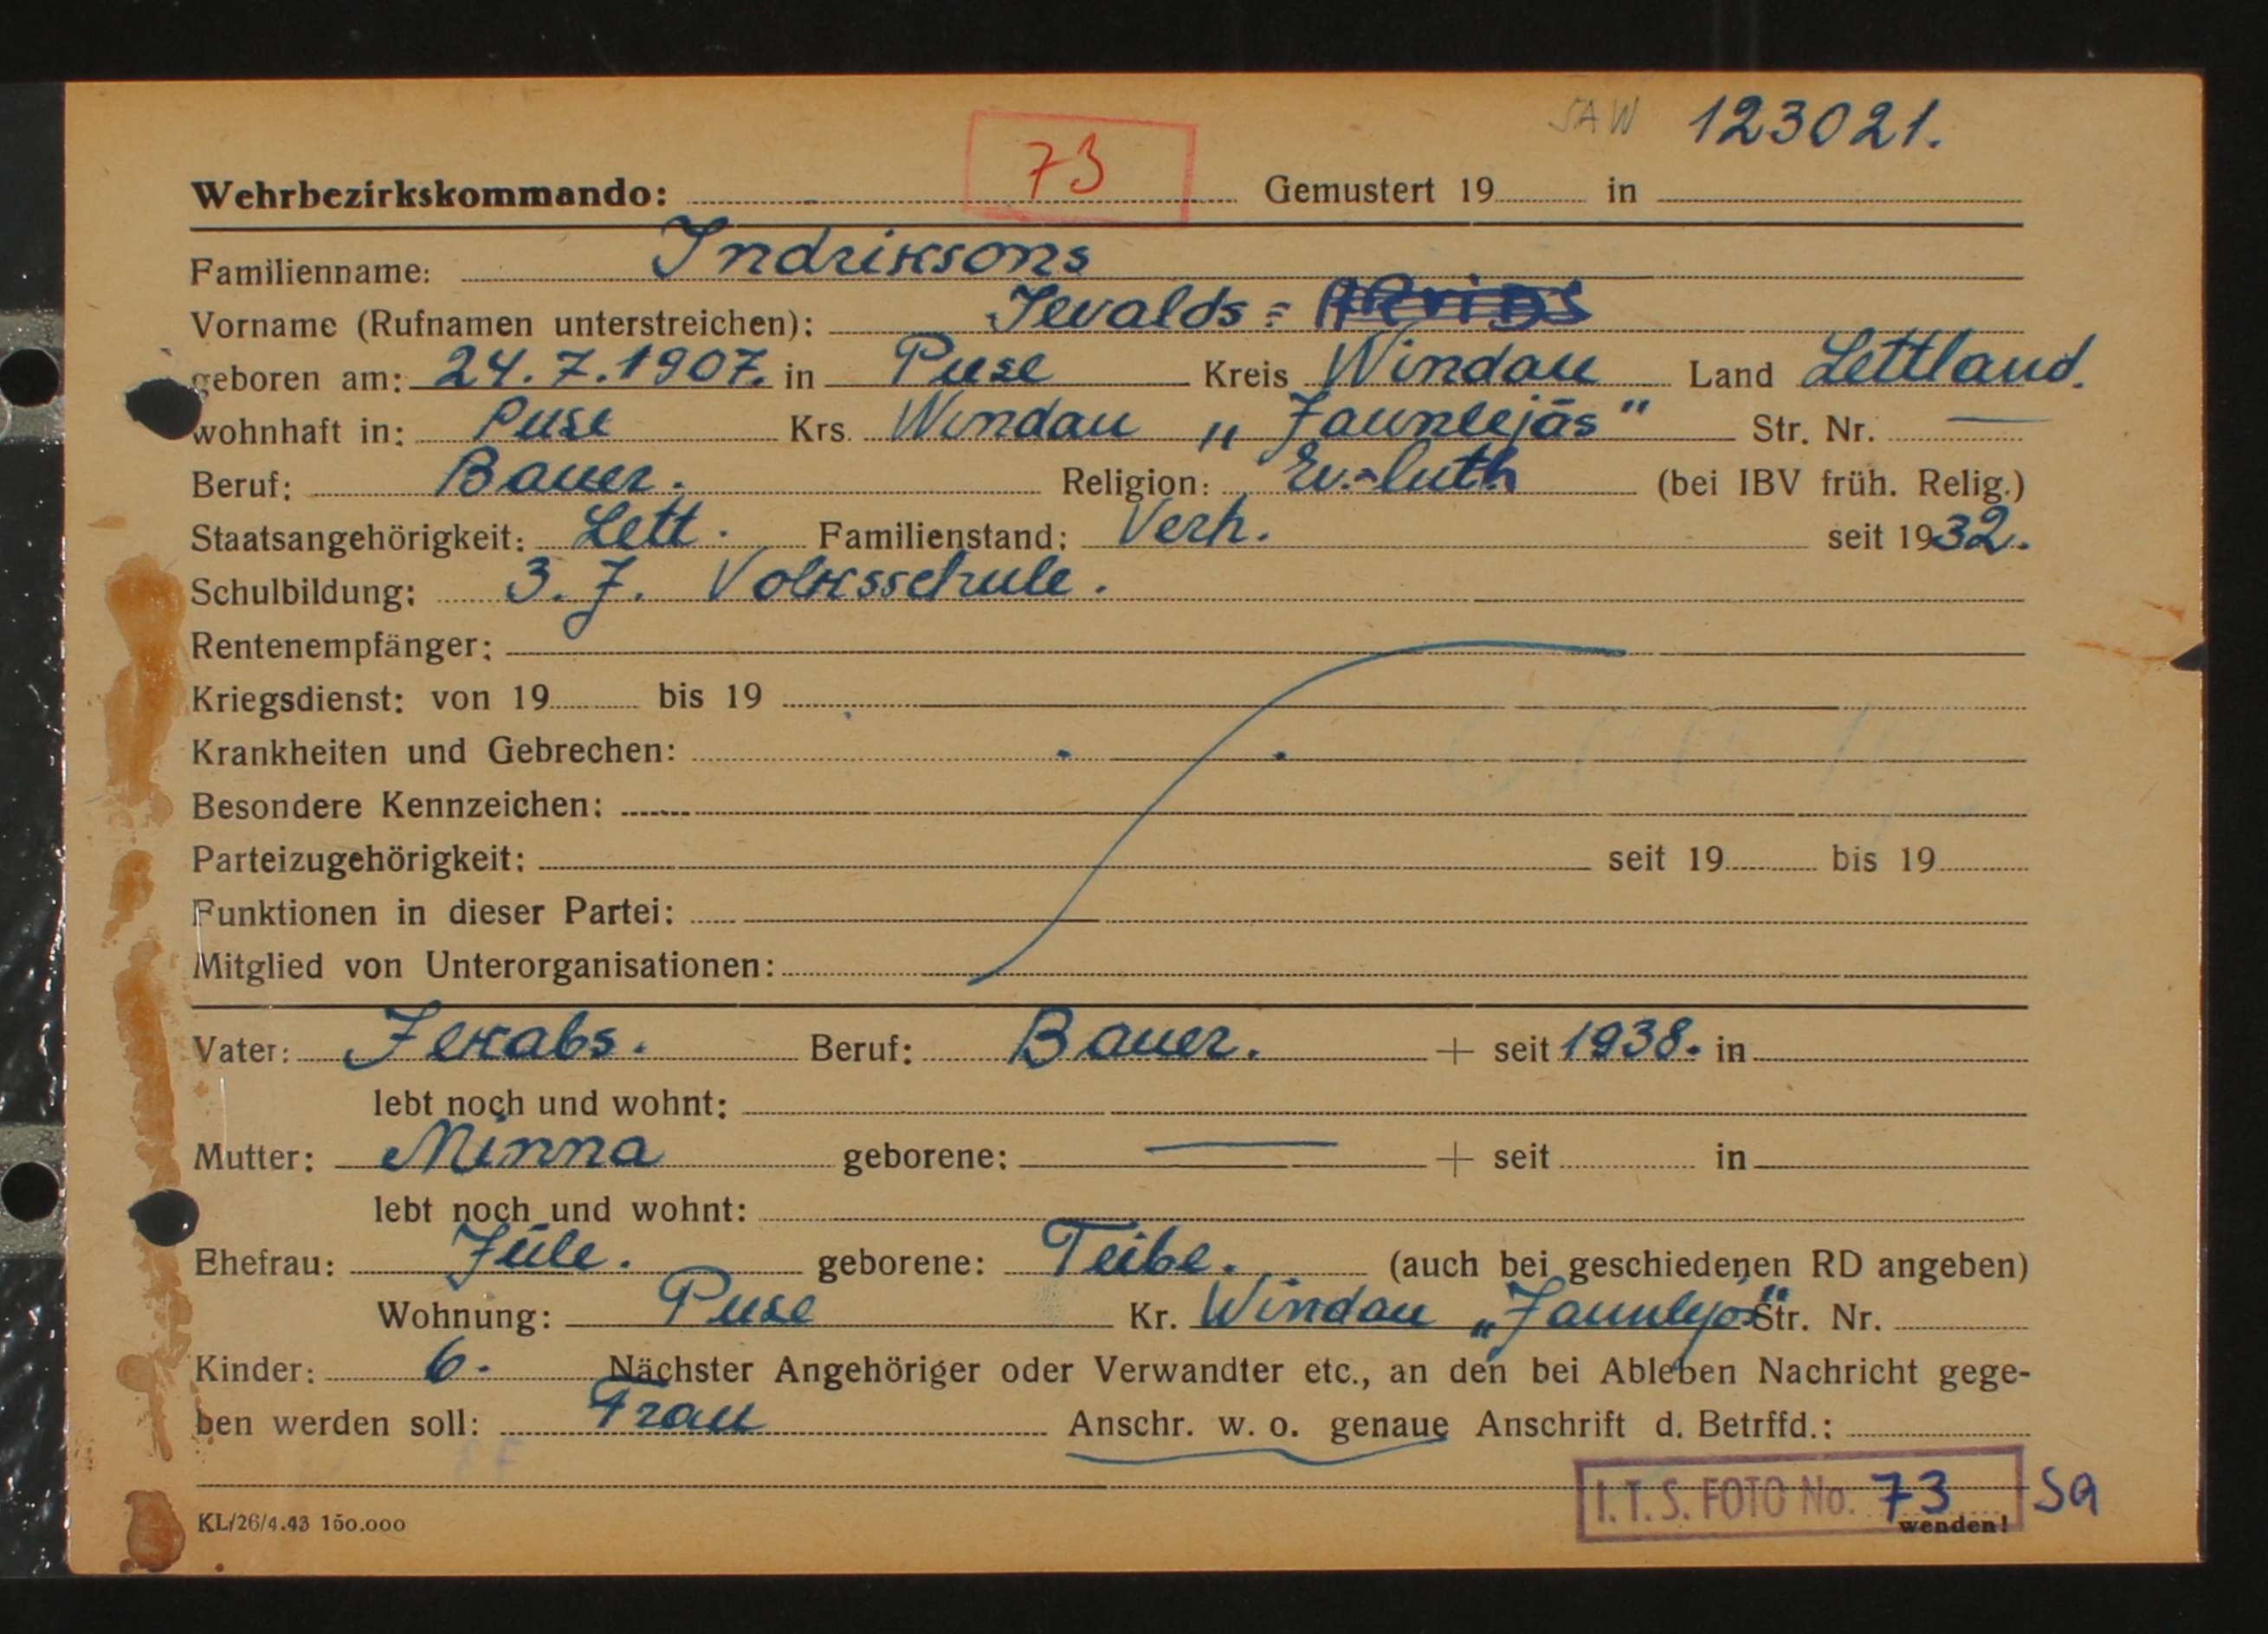 SAW 123021.
73
Wehrbezirkskommando: Gemustert 19 in
Familienname: Indriksons
Vorname (Rufnamen unterstreichen): Jevalds = Arvids
geboren am: 24.7.1907. in Puse Kreis Windau Land Lettland.
wohnhaft in: Puse Krs. Windau „Jaunlejās" Str. Nr. —
Beruf: Bauer. Religion: Ev.-luth (bei IBV früh. Relig.)
Staatsangehörigkeit: Lett. Familienstand: Verh. seit 1932.
Schulbildung: 3. J. Volksschule.
Rentenempfänger:
Kriegsdienst: von 19 bis 19
Krankheiten und Gebrechen:
Besondere Kennzeichen:
Parteizugehörigkeit: seit 19 bis 19
Funktionen in dieser Partei:
Mitglied von Unterorganisationen:
Vater: Jekabs. Beruf: Bauer. + seit 1938. in
lebt noch und wohnt:
Mutter: Minna geborene: — + seit in
lebt noch und wohnt:
Ehefrau: Jule. geborene: Teibe. (auch bei geschiedenen RD angeben)
Wohnung: Puse Kr. Windau „Jaunlejās" Str. Nr.
Kinder: 6. Nächster Angehöriger oder Verwandter etc., an den bei Ableben Nachricht gege-
ben werden soll: Frau Anschr. w. o. genaue Anschrift d. Betrffd.:
I.T.S. FOTO No. 73 Sa
KL/26/4.43 150.000 wenden!